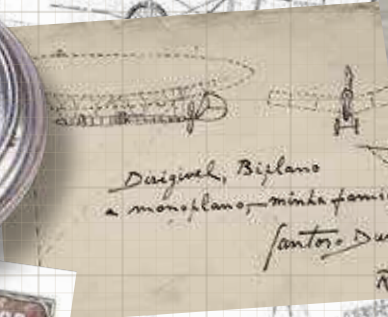 Dirigivel, Biplano
e monoplano, — minha fami
Santos-Du
R